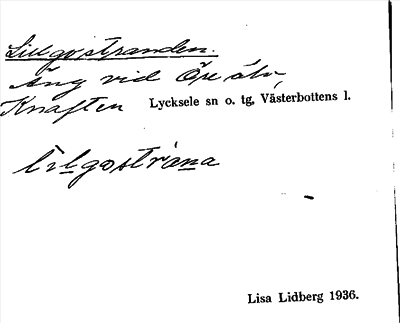 Lillgostranden.
Äng vid Öre älv,
Knaften Lycksele sn o. tg, Västerbottens l.
lilgostrana
Lisa Lidberg 1936.